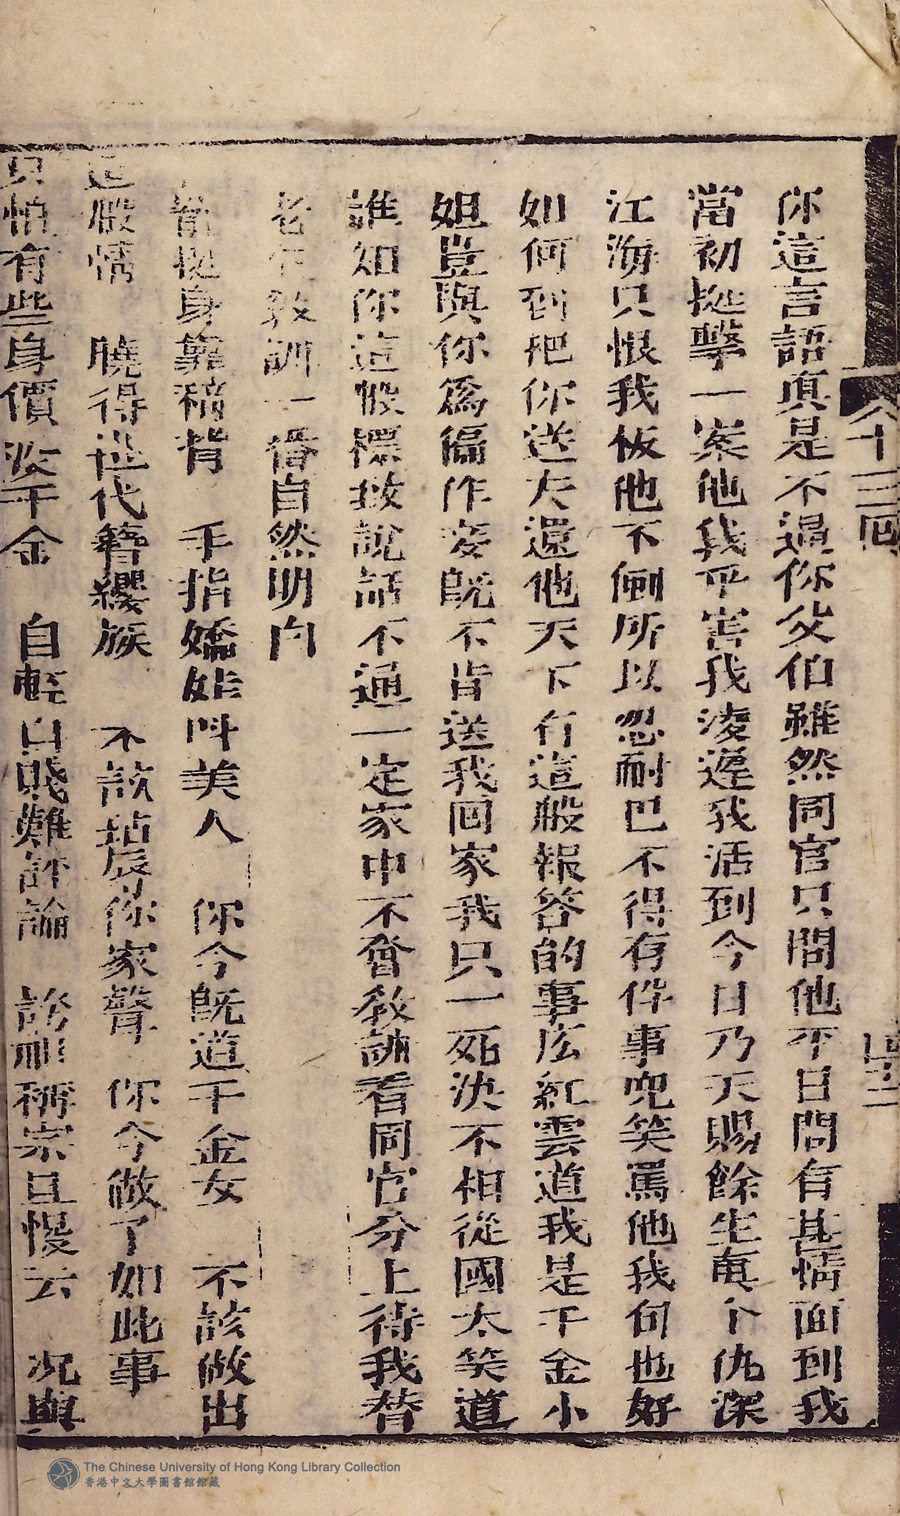 八十三回
你這言語真是不通你父伯雖然同官只問他平日間有甚情面到我
當初挺擊一案他我平害我淩遲我活到今日乃天賜餘生真个仇深
江海只恨我板他不倒所以忍耐巴不得有件事兜笑罵他我何也好
如何到把你送大還他天下有這般報答的事広紅雲道我是千金小
姐豈與你為偏作妾既不肯送我回家我只一死決不相從國太笑道
誰知你這般標致說話不通一定家中不會教誨看同官分上待我替
老年教訓一番自然明白
挺身靠稿背 手指嬌娃呌美人 你今既道千金女 不該做出
這般情 曉得世代簪纓族 不該玷辱你家聲 你今做了如此事
只怕有些身價沒千金 自輕自賤難評論 誇祖稱宗且慢云 况與
The Chinese University of Hong Kong Library Collection
香港中文大學圖書館館藏